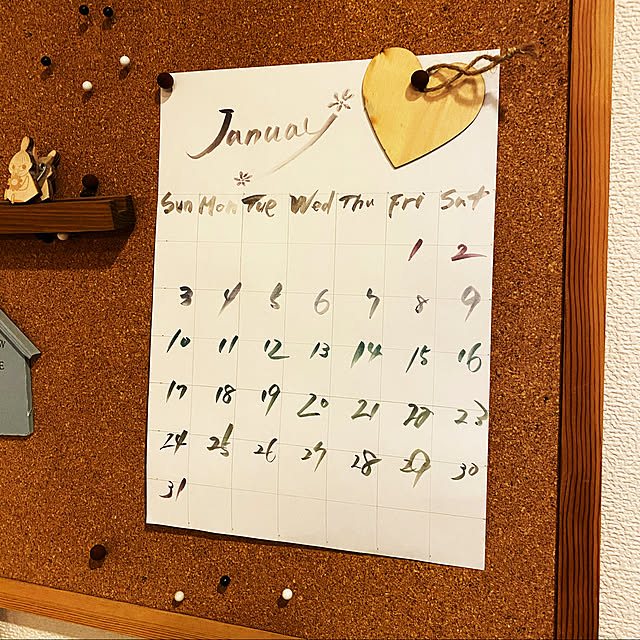 January
Sun Mon Tue Wed Thu Fri Sat
1 2
3 4 5 6 7 8 9
10 11 12 13 14 15 16
17 18 19 20 21 22 23
24 25 26 27 28 29 30
31